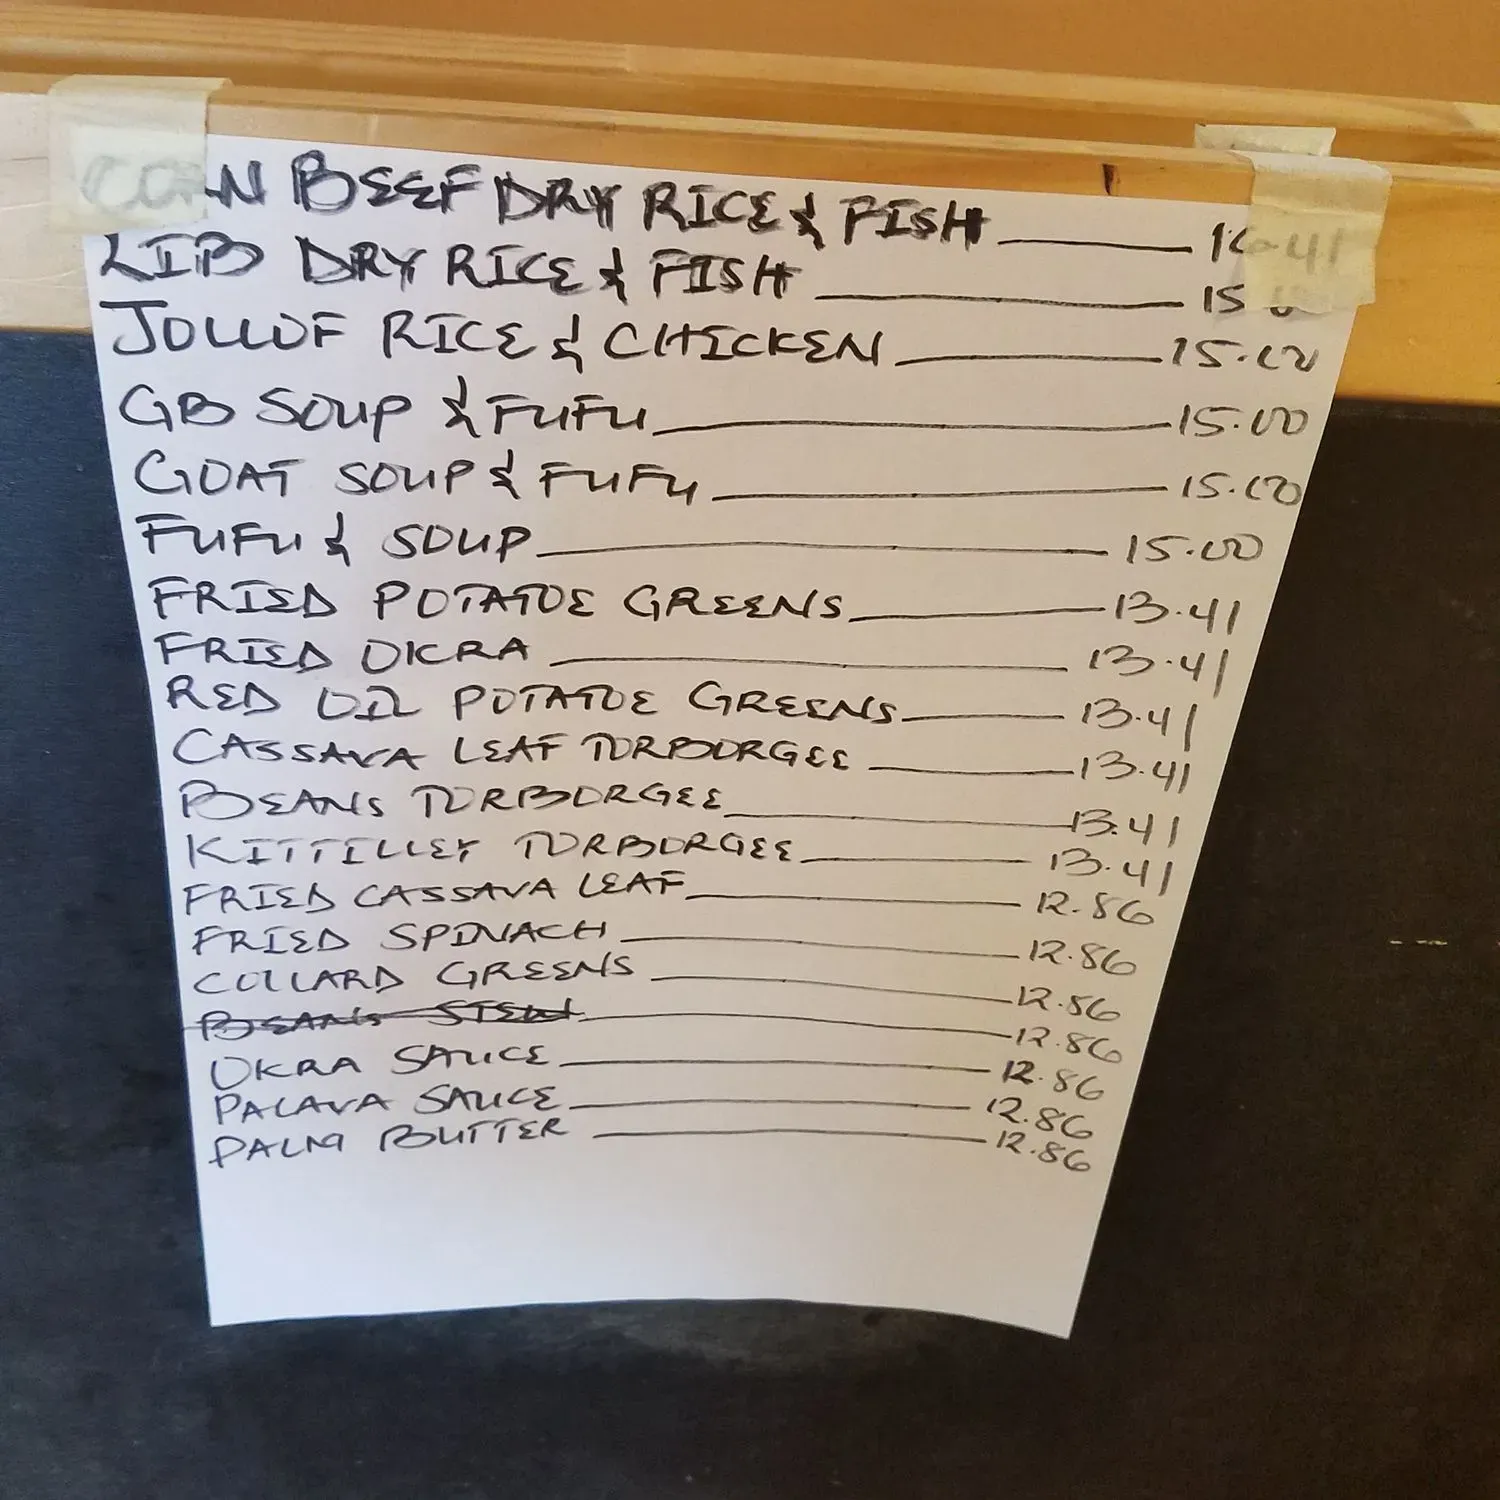 CORN BEEF DRY RICE & FISH 16.41
LIB DRY RICE & FISH
JOLLOF RICE & CHICKEN 15.00
GB SOUP & FUFU 15.00
GOAT SOUP & FUFU 15.00
FUFU & SOUP 15.00
FRIED POTATOE GREENS 13.41
FRIED OKRA 13.41
RED OIL POTATOE GREENS 13.41
CASSAVA LEAF TORBORGEE 13.41
BEANS TORBORGEE 13.41
KITTILLEY TORBORGEE 13.41
FRIED CASSAVA LEAF 12.86
FRIED SPINACH 12.86
COLLARD GREENS 12.86
BEANS STEW 12.86
OKRA SAUCE 12.86
PALAVA SAUCE 12.86
PALM BUTTER 12.86